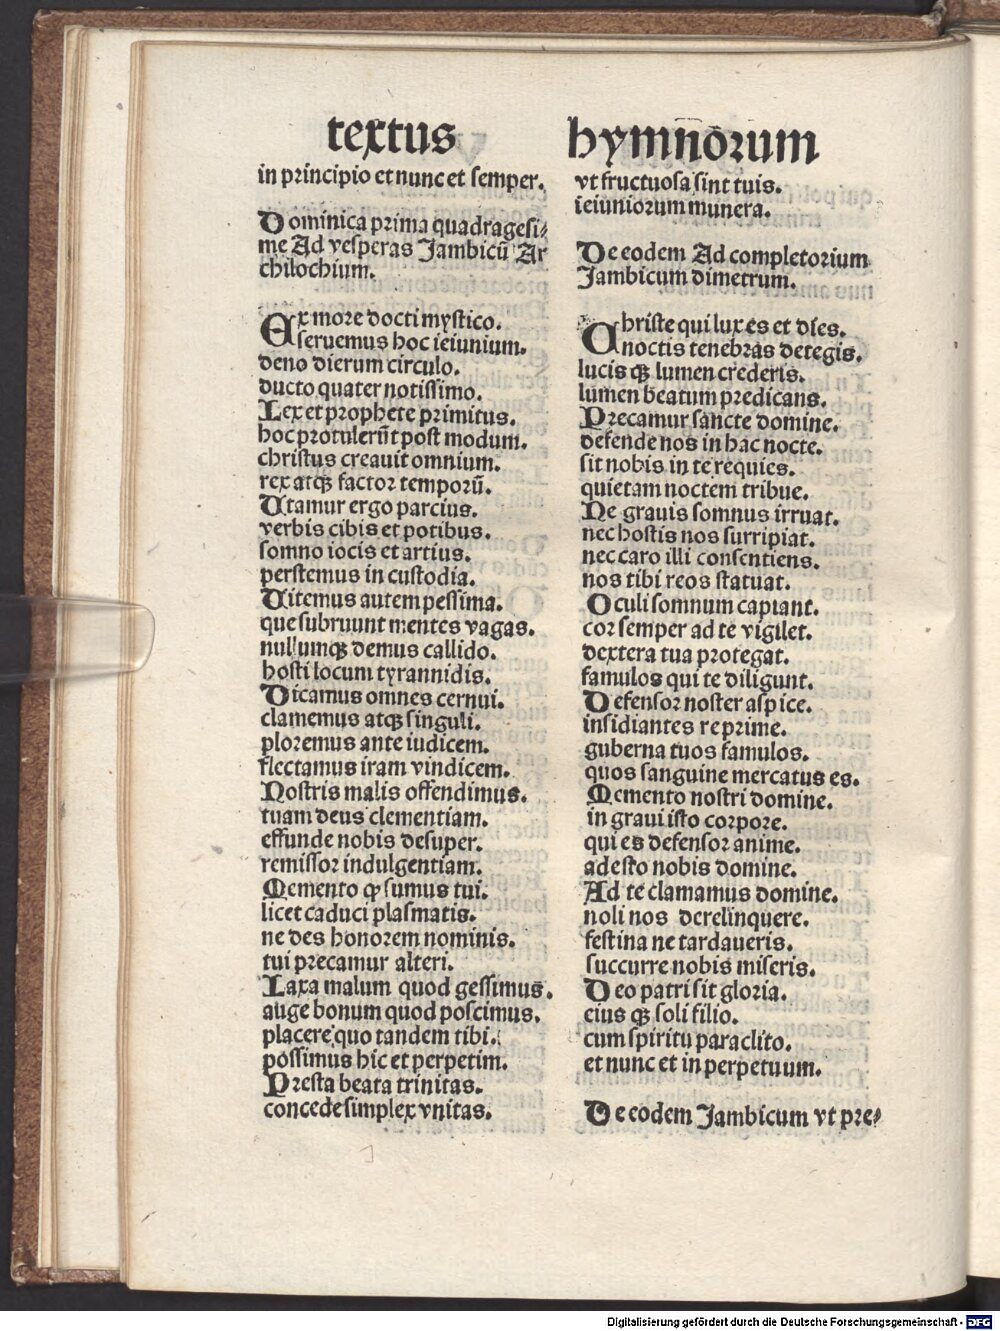 textus hymnorum
in principio et nunc et semper.
Dominica prima quadragesi⸗
me Ad vesperas Jambicū Ar
chilochium.
Ex more docti mystico.
seruemus hoc ieiunium.
deno dierum circulo.
ducto quater notissimo.
Lex et prophete primitus.
hoc protulerūt post modum.
christus creauit omnium.
rex atqꝫ factor temporū.
Utamur ergo parcius.
verbis cibis et potibus.
somno iocis et artius.
perstemus in custodia.
Uitemus autem pessima.
que subruunt mentes vagas.
nullumqꝫ demus callido.
hosti locum tyrannidis.
Dicamus omnes cernui.
clamemus atqꝫ singuli.
ploremus ante iudicem.
flectamus iram vindicem.
Nostris malis offendimus.
tuam deus clementiam.
effunde nobis desuper.
remissor indulgentiam.
Memento ꝙ sumus tui.
licet caduci plasmatis.
ne des honorem nominis.
tui precamur alteri.
Laxa malum quod gessimus.
auge bonum quod poscimus.
placere quo tandem tibi.
possimus hic et perpetim.
Presta beata trinitas.
concede simplex vnitas.
vt fructuosa sint tuis.
ieiuniorum munera.
De eodem Ad completorium
Jambicum dimetrum.
Christe qui lux es et dies.
noctis tenebras detegis.
lucis qꝫ lumen crederis.
lumen beatum predicans.
Precamur sancte domine.
defende nos in hac nocte.
sit nobis in te requies.
quietam noctem tribue.
Ne grauis somnus irruat.
nec hostis nos surripiat.
nec caro illi consentiens.
nos tibi reos statuat.
Oculi somnum capiant.
cor semper ad te vigilet.
dextera tua protegat.
famulos qui te diligunt.
Defensor noster aspice.
insidiantes reprime.
guberna tuos famulos.
quos sanguine mercatus es.
Memento nostri domine.
in graui isto corpore.
qui es defensor anime.
adesto nobis domine.
Ad te clamamus domine.
noli nos derelinquere.
festina ne tardaueris.
succurre nobis miseris.
Deo patri sit gloria.
eius qꝫ soli filio.
cum spiritu paraclito.
et nunc et in perpetuum.
De eodem Jambicum vt pre⸗
Digitalisierung gefördert durch die Deutsche Forschungsgemeinschaft - DFG